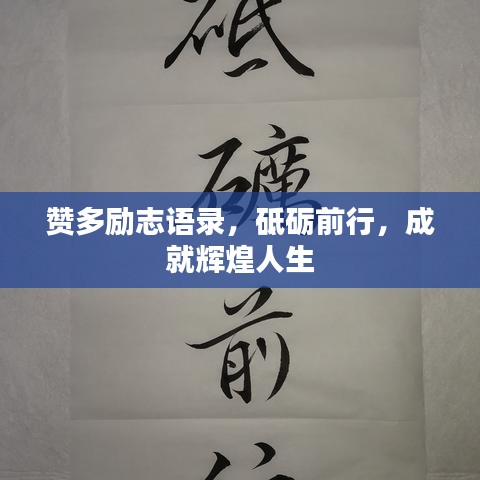 砥
礪
赞多励志语录，砥砺前行，成
就辉煌人生
前